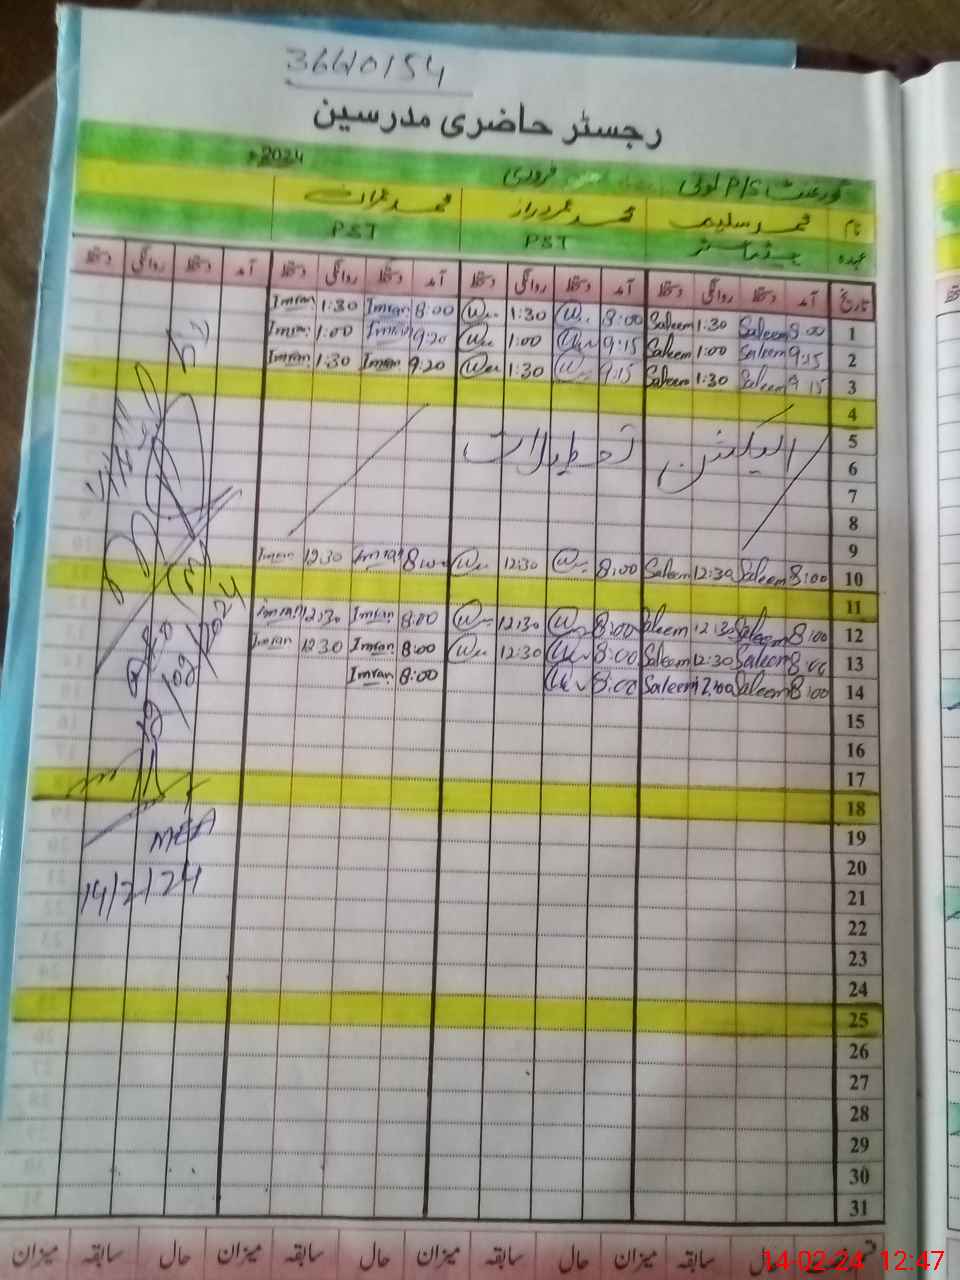 36610154
رجسٹر حاضری مدرسین
گورنمنٹ P/S فروری 2024ء
نام محمد سلیم محمد عمر دراز محمد عمران
عہدہ ہیڈماسٹر PST PST
تاریخ آمد دستخط روانگی دستخط آمد دستخط روانگی دستخط آمد دستخط روانگی دستخط آمد دستخط روانگی دستخط
1 8:00 Saleem 1:30 Saleem 8:00 1:30 8:00 Imran 1:30 Imran
2 9:15 Saleem 1:00 Saleem 9:15 1:00 9:20 Imran 1:00 Imran
3 9:15 Saleem 1:30 Saleem 9:15 1:30 9:20 Imran 1:30 Imran
4
5
6 الیکشن تعطیلات
7
8
9
10 8:00 Saleem 12:30 Saleem 8:00 12:30 8:00 Imran 12:30 Imran
11
12 8:00 Saleem 12:30 Saleem 8:00 12:30 8:00 Imran 12:30 Imran
13 8:00 Saleem 12:30 Saleem 8:00 12:30 8:00 Imran 12:30 Imran
14 8:00 Saleem Saleem 8:00 8:00 Imran
15
16
17
18
19
20
21
22
23
24
25
26
27
28
29
30
31
MEA
14/2/24
حال سابقہ میزان حال سابقہ میزان حال سابقہ میزان حال سابقہ میزان
14-02-24 12:47